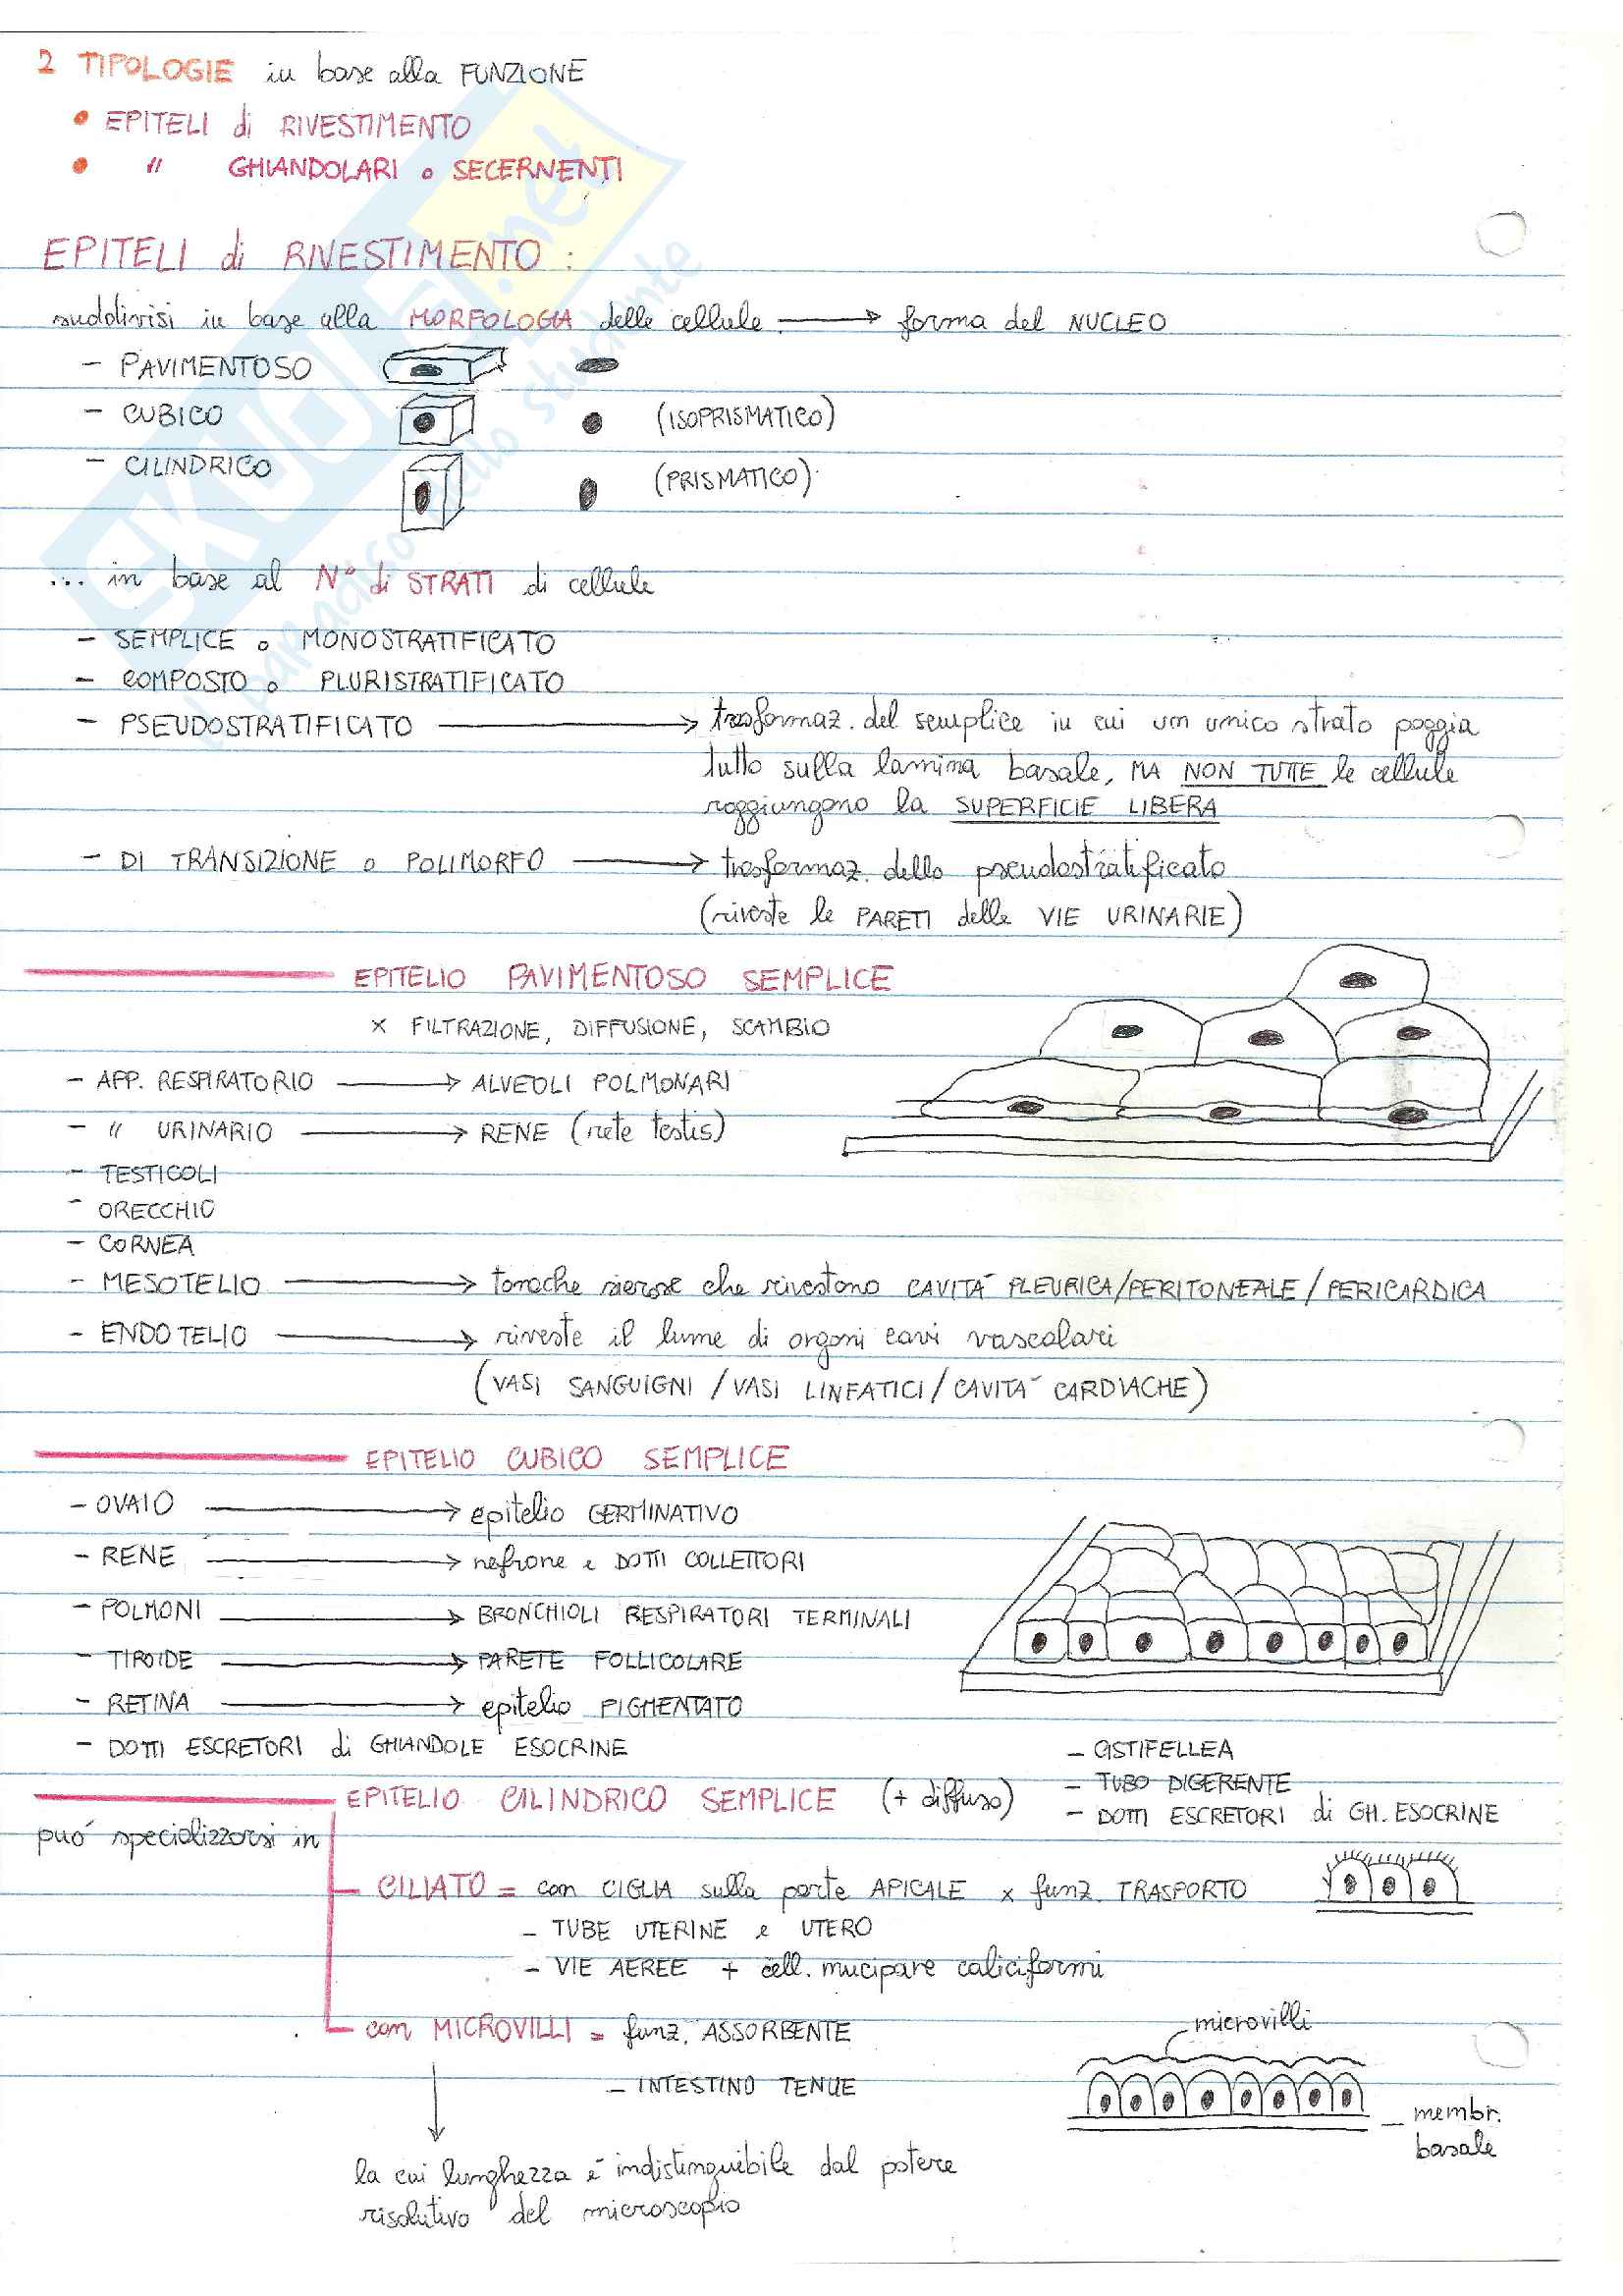 2 TIPOLOGIE in base alla FUNZIONE
• EPITELI di RIVESTIMENTO
• " GHIANDOLARI o SECERNENTI
EPITELI di RIVESTIMENTO :
suddivisi in base alla MORFOLOGIA delle cellule → forma del NUCLEO
- PAVIMENTOSO
- CUBICO (ISOPRISMATICO)
- CILINDRICO (PRISMATICO)
... in base al N° di STRATI di cellule
- SEMPLICE o MONOSTRATIFICATO
- COMPOSTO o PLURISTRATIFICATO
- PSEUDOSTRATIFICATO → trasformaz. del semplice in cui un unico strato poggia
tutto sulla lamina basale, MA NON TUTTE le cellule
raggiungono la SUPERFICIE LIBERA
- DI TRANSIZIONE o POLIMORFO → trasformaz. dello pseudostratificato
(riveste le PARETI delle VIE URINARIE)
EPITELIO PAVIMENTOSO SEMPLICE
x FILTRAZIONE, DIFFUSIONE, SCAMBIO
- APP. RESPIRATORIO → ALVEOLI POLMONARI
- " URINARIO → RENE (rete testis)
- TESTICOLI
- ORECCHIO
- CORNEA
- MESOTELIO → tonache sierose che rivestono CAVITÀ PLEURICA/PERITONEALE/PERICARDICA
- ENDOTELIO → riveste il lume di organi cavi vascolari
(VASI SANGUIGNI / VASI LINFATICI / CAVITÀ CARDIACHE)
EPITELIO CUBICO SEMPLICE
- OVAIO → epitelio GERMINATIVO
- RENE → nefrone e DOTTI COLLETTORI
- POLMONI → BRONCHIOLI RESPIRATORI TERMINALI
- TIROIDE → PARETE FOLLICOLARE
- RETINA → epitelio PIGMENTATO
- DOTTI ESCRETORI di GHIANDOLE ESOCRINE
EPITELIO CILINDRICO SEMPLICE (+ diffuso)
- CISTIFELLEA
- TUBO DIGERENTE
- DOTTI ESCRETORI di GH. ESOCRINE
può specializzarsi in
CILIATO = con CIGLIA sulla parte APICALE x funz. TRASPORTO
- TUBE UTERINE e UTERO
- VIE AEREE + cell. mucipare caliciformi
con MICROVILLI = funz. ASSORBENTE
- INTESTINO TENUE
microvilli
membr.
basale
la cui lunghezza è indistinguibile dal potere
risolutivo del microscopio
SKUOLA.net
il paradiso dello studente